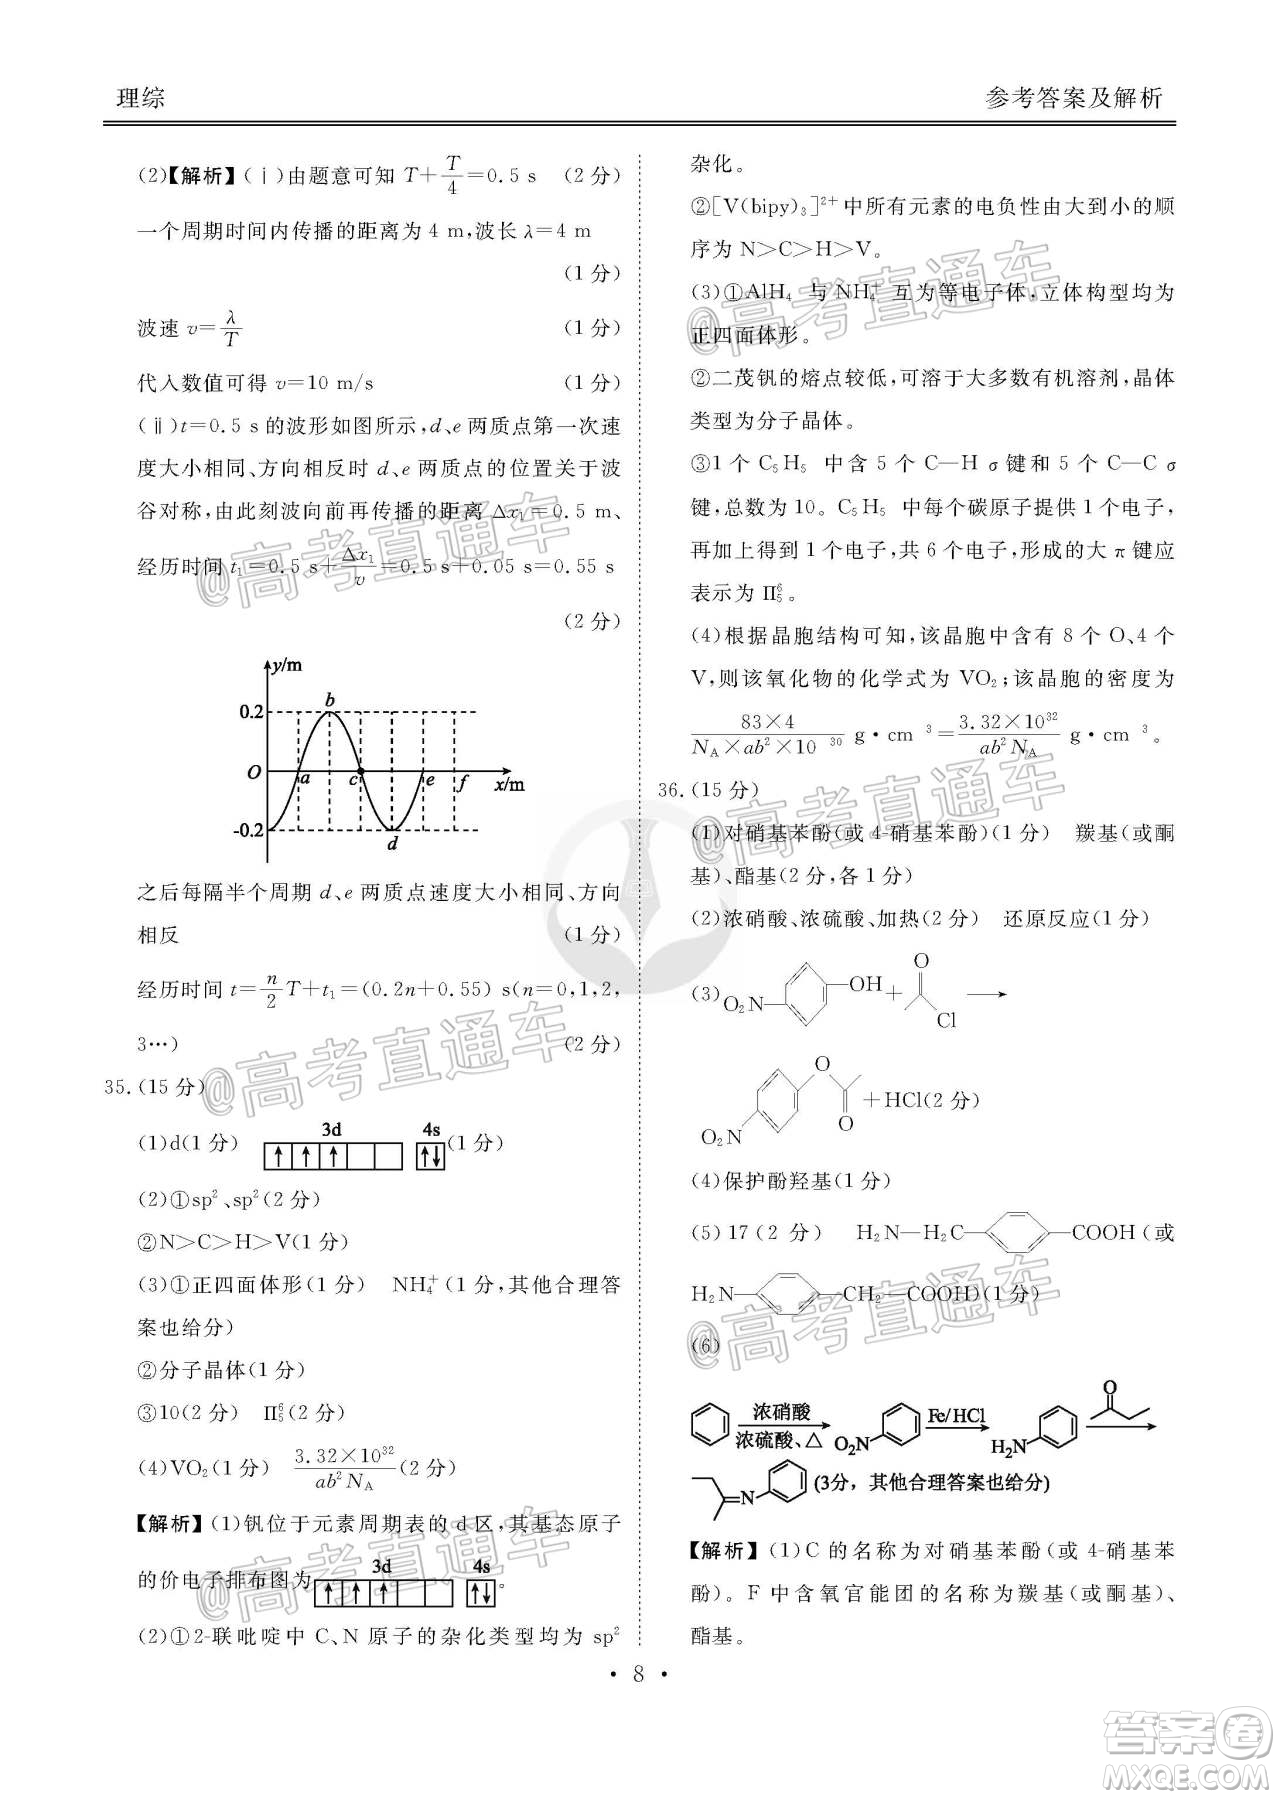 理综
参考答案及解析
(2)【解析】(ⅰ)由题意可知 T+T/4=0.5 s (2 分)
一个周期时间内传播的距离为 4 m,波长 λ=4 m
(1 分)
波速 v=λ/T (1 分)
代入数值可得 v=10 m/s (1 分)
(ⅱ)t=0.5 s 的波形如图所示,d、e 两质点第一次速
度大小相同、方向相反时 d、e 两质点的位置关于波
谷对称,由此刻波向前再传播的距离 Δx₁=0.5 m、
经历时间 t₁=0.5 s+Δx₁/v=0.5 s+0.05 s=0.55 s
(2 分)
y/m
0.2
b
O
a
c
e
f
x/m
-0.2
d
之后每隔半个周期 d、e 两质点速度大小相同、方向
相反 (1 分)
经历时间 t=n/2 T+t₁=(0.2n+0.55) s(n=0,1,2,
3…) (2 分)
35.(15 分)
(1)d(1 分) 3d ↑ ↑ ↑ 4s ↑↓ (1 分)
(2)①sp²、sp²(2 分)
②N>C>H>V(1 分)
(3)①正四面体形(1 分) NH₄⁺(1 分,其他合理答
案也给分)
②分子晶体(1 分)
③10(2 分) Π₅⁶(2 分)
(4)VO₂(1 分) 3.32×10³²/ab²N_A(2 分)
【解析】(1)钒位于元素周期表的 d 区,其基态原子
的价电子排布图为 3d ↑ ↑ ↑ 4s ↑↓ 。
(2)①2-联吡啶中 C、N 原子的杂化类型均为 sp²
杂化。
②[V(bipy)₃]²⁺中所有元素的电负性由大到小的顺
序为 N>C>H>V。
(3)①AlH₄ 与 NH₄⁺ 互为等电子体,立体构型均为
正四面体形。
②二茂钒的熔点较低,可溶于大多数有机溶剂,晶体
类型为分子晶体。
③1 个 C₅H₅ 中含 5 个 C—H σ键和 5 个 C—C σ
键,总数为 10。C₅H₅ 中每个碳原子提供 1 个电子,
再加上得到 1 个电子,共 6 个电子,形成的大 π 键应
表示为 Π₅⁶。
(4)根据晶胞结构可知,该晶胞中含有 8 个 O、4 个
V,则该氧化物的化学式为 VO₂;该晶胞的密度为
83×4/N_A×ab²×10 ³⁰ g·cm ³=3.32×10³²/ab²N_A g·cm ³。
36.(15 分)
(1)对硝基苯酚(或 4-硝基苯酚)(1 分) 羰基(或酮
基)、酯基(2 分,各 1 分)
(2)浓硝酸、浓硫酸、加热(2 分) 还原反应(1 分)
(3) O₂N— —OH + O Cl ⟶
O₂N O O +HCl(2 分)
(4)保护酚羟基(1 分)
(5)17(2 分) H₂N—H₂C— —COOH(或
H₂N— —CH₂—COOH)(1 分)
(6)
浓硝酸 浓硫酸、△ O₂N Fe/HCl H₂N O
N (3分，其他合理答案也给分)
【解析】(1)C 的名称为对硝基苯酚(或 4-硝基苯
酚)。F 中含氧官能团的名称为羰基(或酮基)、
酯基。
• 8 •
@高考直通车
@高考直通车
@高考直通车
@高考直通车
@高考直通车
@高考直通车
@高考直通车
答案卷
MXQE.COM